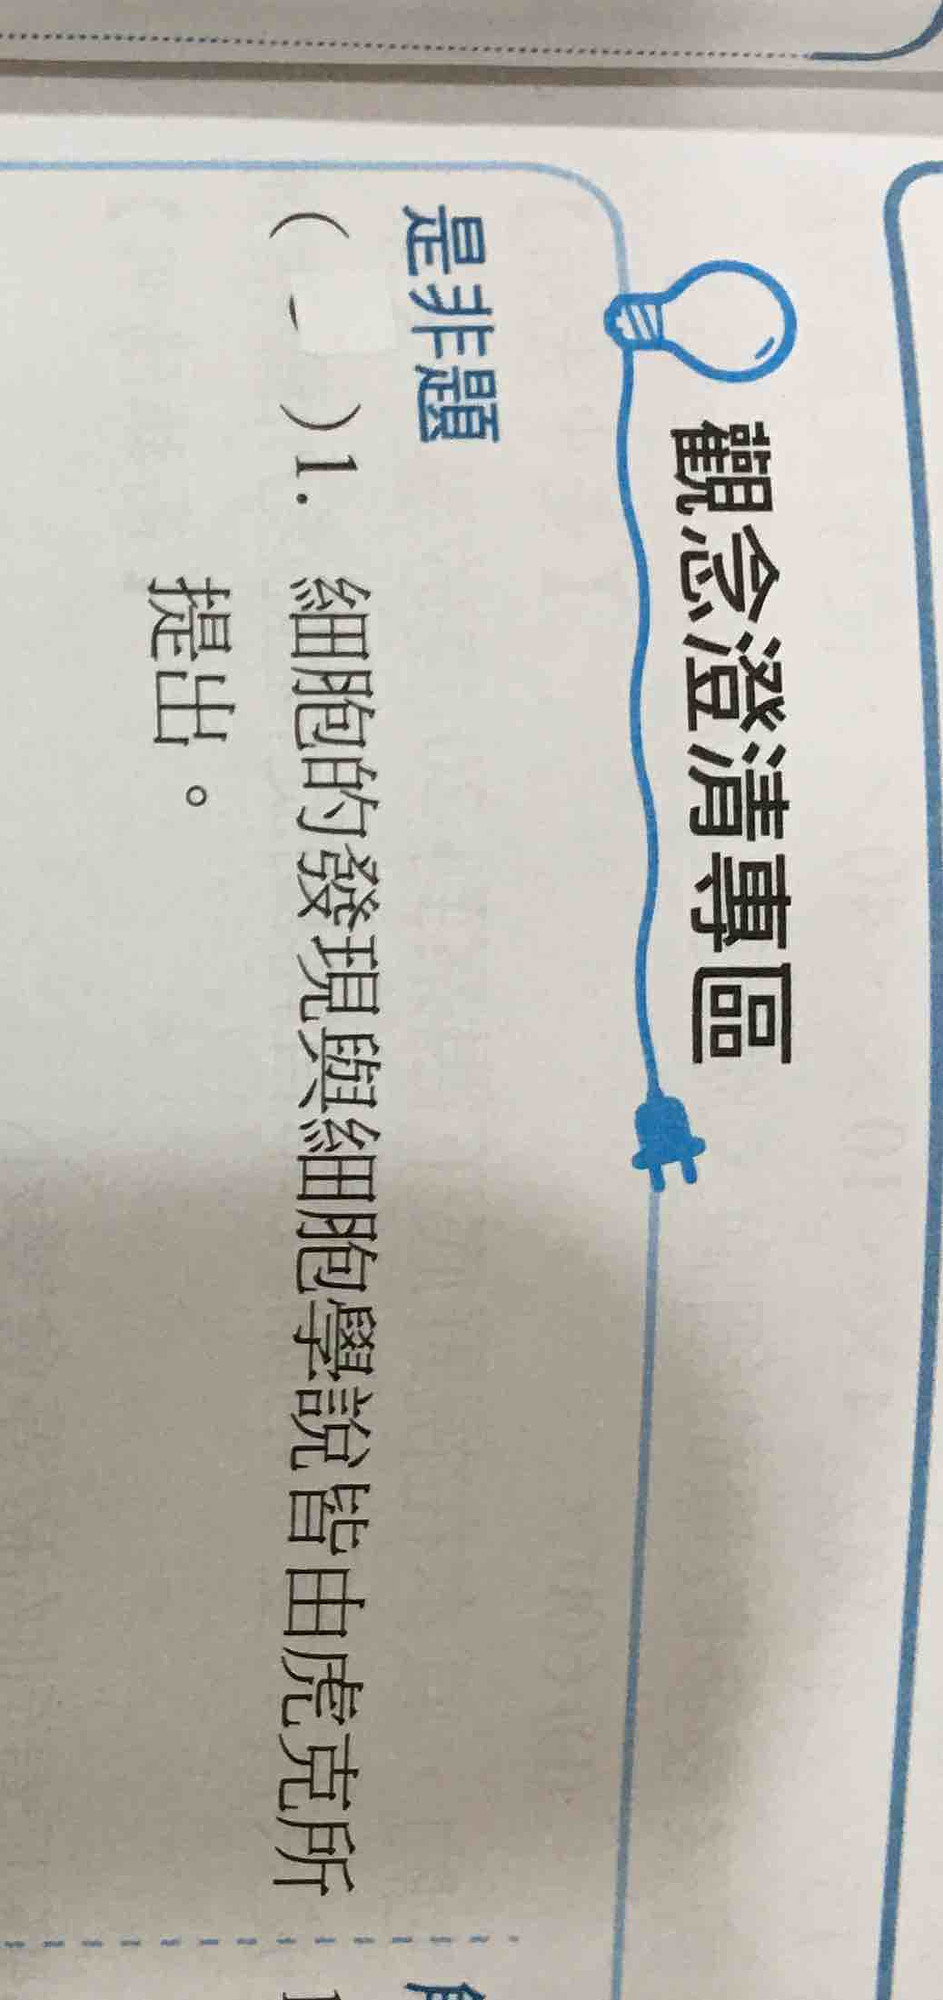 觀念澄清專區
是非題
( )1. 細胞的發現與細胞學說皆由虎克所
提出。
1